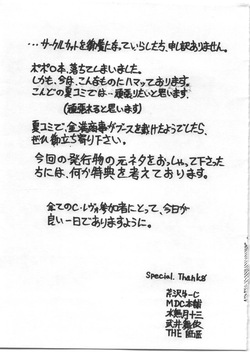 …サークルカットを御覧になっていらした方、申し訳ありません。
ポポロ本、落ちてしまいました。
しかも、今は、こんなものにハマっております。
こんどの夏コミでは…頑張りたいと思います、
(頑張れると思います)
夏コミで、金満商事がブースを頂けたようでしたら、
ぜひ御立ち寄り下さい。
今回の発行物の元ネタをおっしゃって下さった
方には、何か特典を考えております。
全てのC・レヴォ参加者にとって、今日が
良い一日でありますように。
Special. Thanks
芹沢
MDC本舗
水無月十三
武井
THE